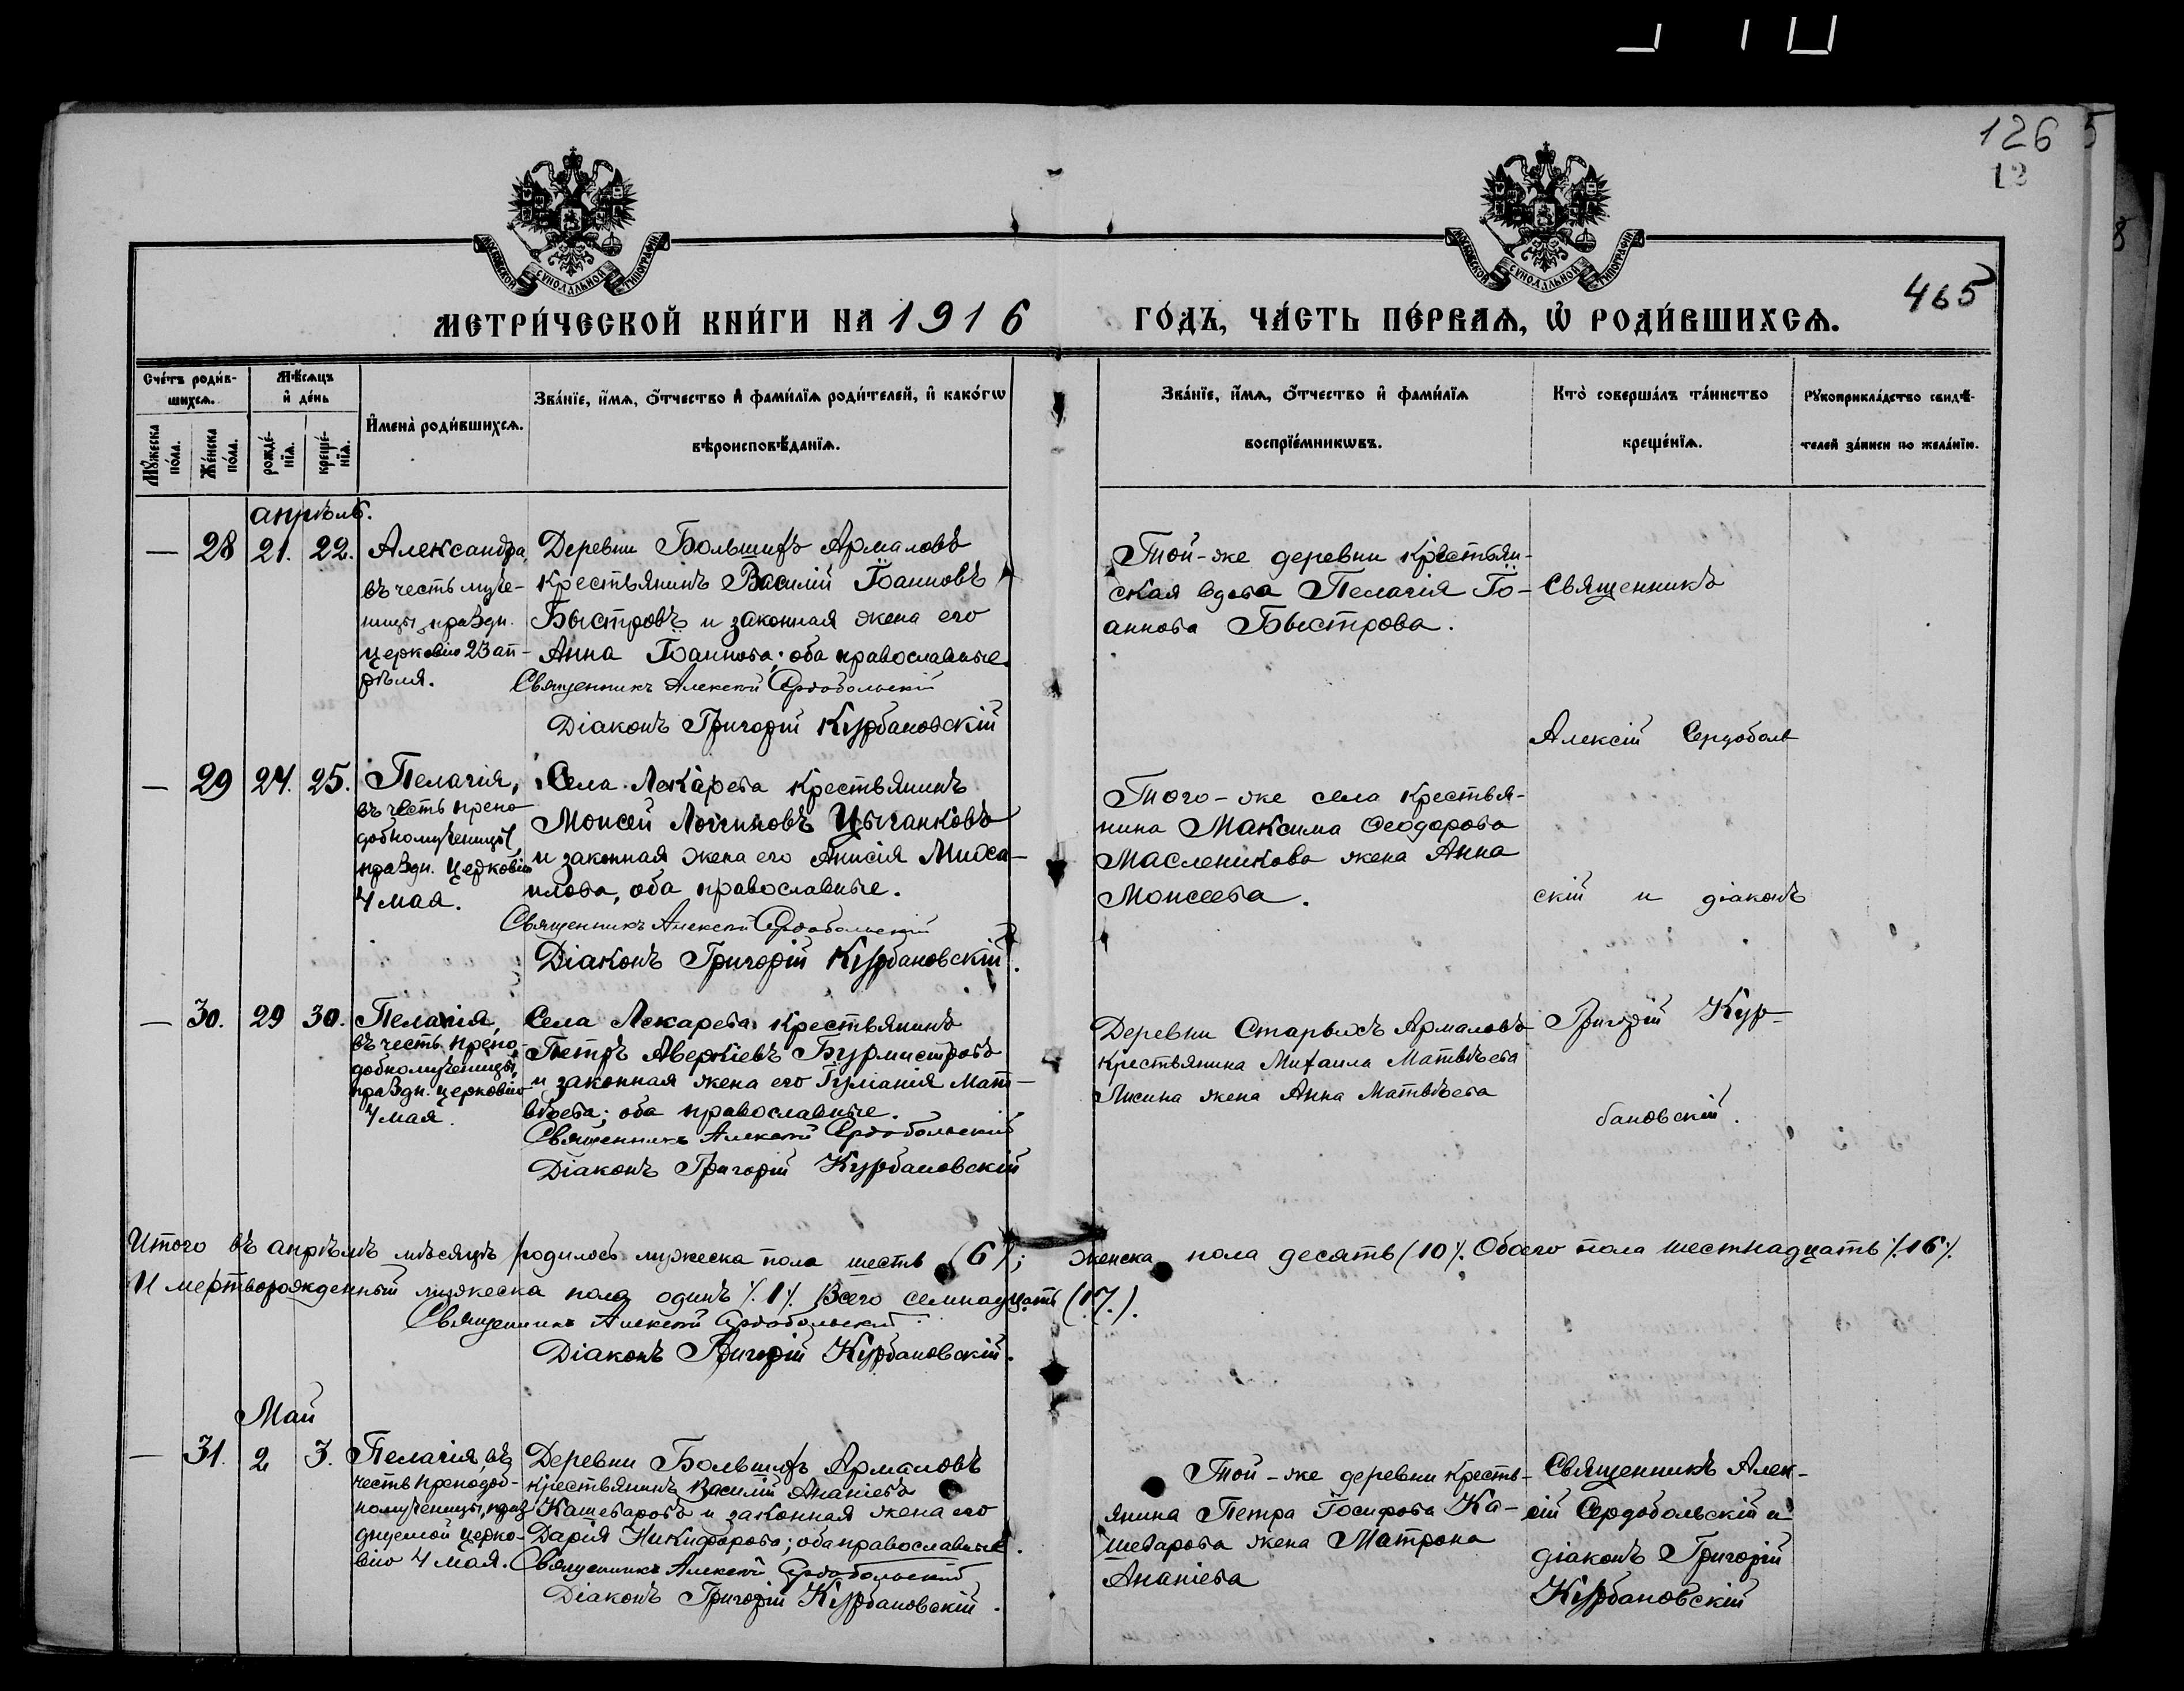 126
5
12
8
МОСКОВСКОЙ СѴНОДАЛЬНОЙ ТИПОГРАФІИ
МОСКОВСКОЙ СѴНОДАЛЬНОЙ ТИПОГРАФІИ
465
МЕТРИ́ЧЕСКОЙ КНИ́ГИ НА 1916 ГО́ДЪ, ЧА́СТЬ ПЕ́РВАѦ, Ѡ҆ РОДИ́ВШИХСѦ.
Сче́тъ роди́в-
шихсѧ.
Мѣ́сѧцъ
и҆ де́нь
Мꙋ́жеска
по́ла.
Же́нска
по́ла.
рожде́-
нїѧ.
креще́-
нїѧ.
И҆мена̀ роди́вшихсѧ.
Зва́нїе, и҆́мѧ, ѻ҆́тчество и҆ фами́лїѧ роди́телей, и҆ како́гѡ
вѣроисповѣ́данїѧ.
Зва́нїе, и҆́мѧ, ѻ҆́тчество и҆ фами́лїѧ
воспрїе́мникѡвъ.
Кто̀ соверша́лъ та́инство
креще́нїѧ.
Рꙋкоприкла́дство свидѣ́-
телей за́писи по жела́нїю.
апрѣль.
— 28 21. 22.
Александра,
въ честь муче-
ницы, праздн.
церковію 23 ап-
рѣля.
Деревни Большихъ Армаловъ
крестьянинъ Василій Іоанновъ
Быстровъ и законная жена его
Анна Іоаннова; оба православные.
Священникъ Алексій Сердобольскій
Діаконъ Григорій Курбановскій
Той-же деревни крестьян-
ская вдова Пелагія Іо-
аннова Быстрова.
Священникъ
Алексій Сердоболь
скій и діаконъ
Григорій Кур-
бановскій.
— 29 24. 25.
Пелагія,
въ честь препо
добномученицы,
праздн. церковію
4 мая.
Села Лекарева крестьянинъ
Моисей Логгиновъ Цыганковъ
и законная жена его Анисія Миха-
илова, оба православные.
Священникъ Алексій Сердобольскій
Діаконъ Григорій Курбановскій.
Того-же села крестья-
нина Максима Ѳеодорова
Масленикова жена Анна
Моисеева.
— 30. 29 30.
Пелагія,
въ честь препо-
добномученицы,
праздн. церковію
4 мая.
Села Лекарева крестьянинъ
Петръ Аверкіевъ Бурмистровъ
и законная жена его Іуліанія Мат-
вѣева; оба православные.
Священникъ Алексій Сердобольскій
Діаконъ Григорій Курбановскій
Деревни Старыхъ Армаловъ
крестьянина Михаила Матвѣева
Лисина жена Анна Матвѣева
Итого въ апрѣлѣ мѣсяцѣ родилось мужеска пола шесть (6); женска пола десять (10). Обоего пола шестнадцать (16).
И мертворожденный мужеска пола одинъ (1). Всего семнадцать (17.).
Священникъ Алексій Сердобольскій
Діаконъ Григорій Курбановскій.
Май
— 31. 2 3.
Пелагія, въ
честь преподоб-
номученицы, праз
днуемой церко-
вію 4 мая.
Деревни Большихъ Армаловъ
крестьянинъ Василій Ананіевъ
Кашеваровъ и законная жена его
Дарія Никифорова; оба православные.
Священникъ Алексій Сердобольскій
Діаконъ Григорій Курбановскій.
Той-же деревни кресть-
янина Петра Іосифова Ка-
шеварова жена Матрона
Ананіева
Священникъ Алек-
сій Сердобольскій и
діаконъ Григорій
Курбановскій